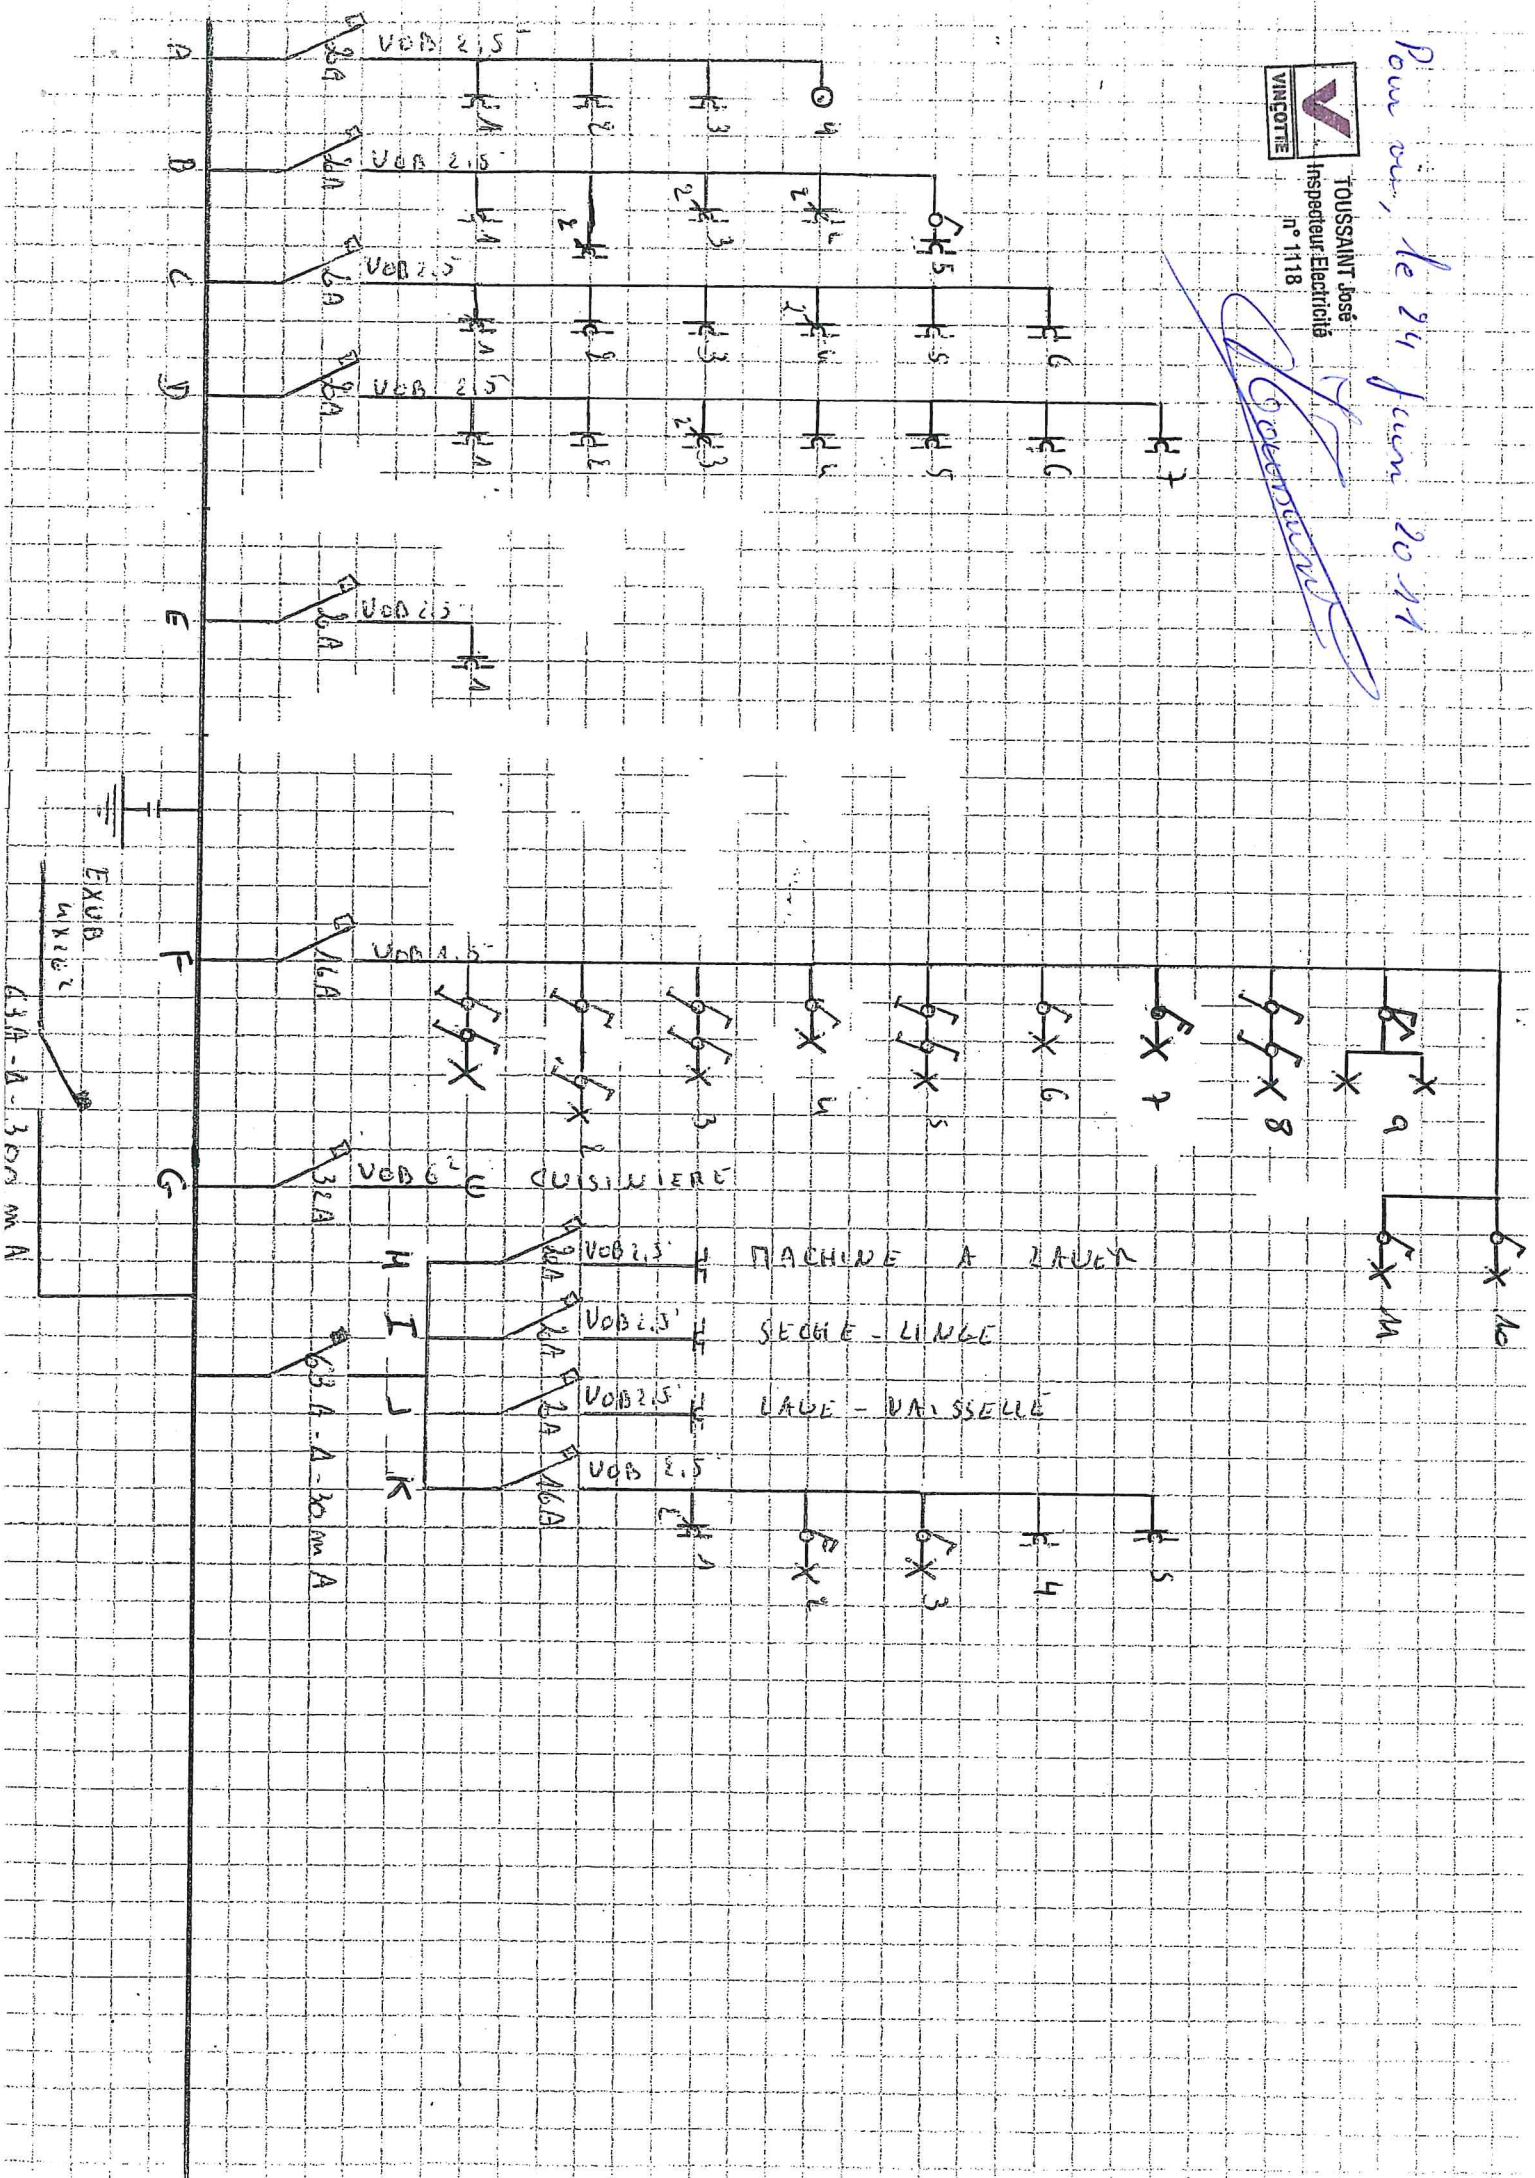 Pour vu, le 24 Juin 2011
VINÇOTTE
TOUSSAINT José
Inspecteur-Electricité
n° 1118
A
20A
VOB 2,5
1
2
3
4
B
20A
VOB 2,5
1
2
2
3
2
4
5
C
20A
VOB 2,5
1
2
3
2
4
5
6
D
20A
VOB 2,5
1
2
2
3
4
5
6
7
E
20A
VOB 2,5
1
EXVB
63A-Δ-300mA
F
16A
VOB 1,5
1
2
3
4
5
6
7
8
9
10
11
G
32A
VOB 6²
CUISINIERE
63A-Δ-30mA
H
20A
VOB 2,5
MACHINE A LAVER
I
20A
VOB 2,5
SECHE-LINGE
J
20A
VOB 2,5
LAVE-VAISSELLE
K
16A
VOB 2,5
2
1
2
3
4
5